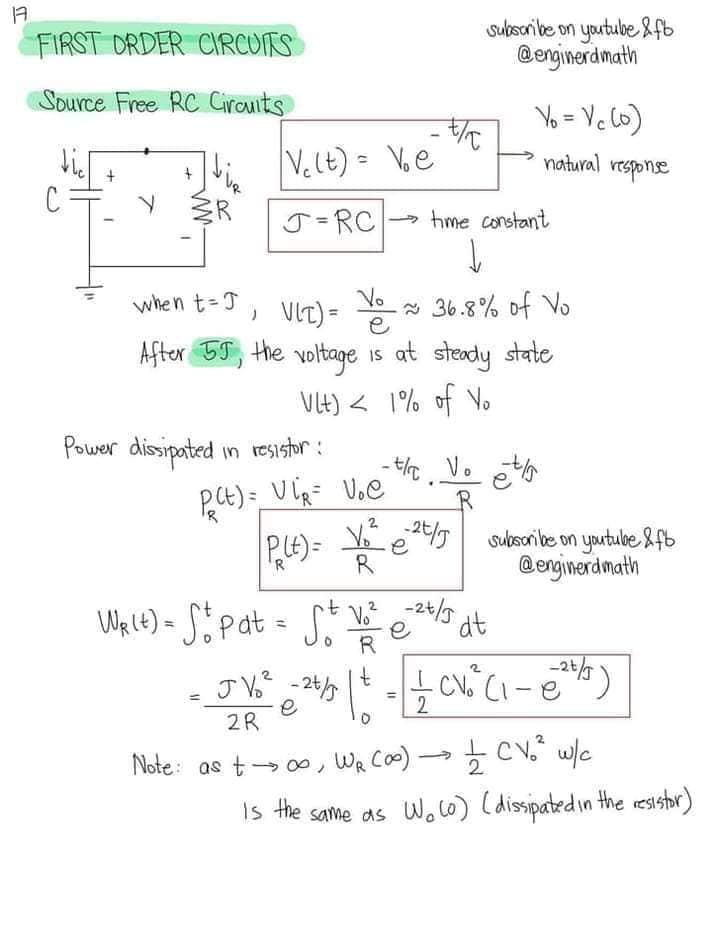 17
FIRST ORDER CIRCUITS
subscribe on youtube & fb
@enginerdmath
Source Free RC Circuits
V₀ = Vc(0)
Vc(t) = V₀e^(-t/τ) → natural response
↓ic + + ↓iR
C V R
- -
τ = RC → time constant
↓
when t = τ, V(τ) = V₀/e ≈ 36.8% of V₀
After 5τ, the voltage is at steady state
V(t) < 1% of V₀
Power dissipated in resistor:
P_R(t) = V i_R = V₀e^(-t/τ) · V₀/R e^(-t/τ)
P_R(t) = V₀²/R e^(-2t/τ)
subscribe on youtube & fb
@enginerdmath
W_R(t) = ∫₀ᵗ p dt = ∫₀ᵗ V₀²/R e^(-2t/τ) dt
= τV₀²/2R e^(-2t/τ) |₀ᵗ = ½ CV₀² (1 - e^(-2t/τ))
Note: as t → ∞, W_R(∞) → ½ CV₀² w/c
Is the same as W₀(0) (dissipated in the resistor)